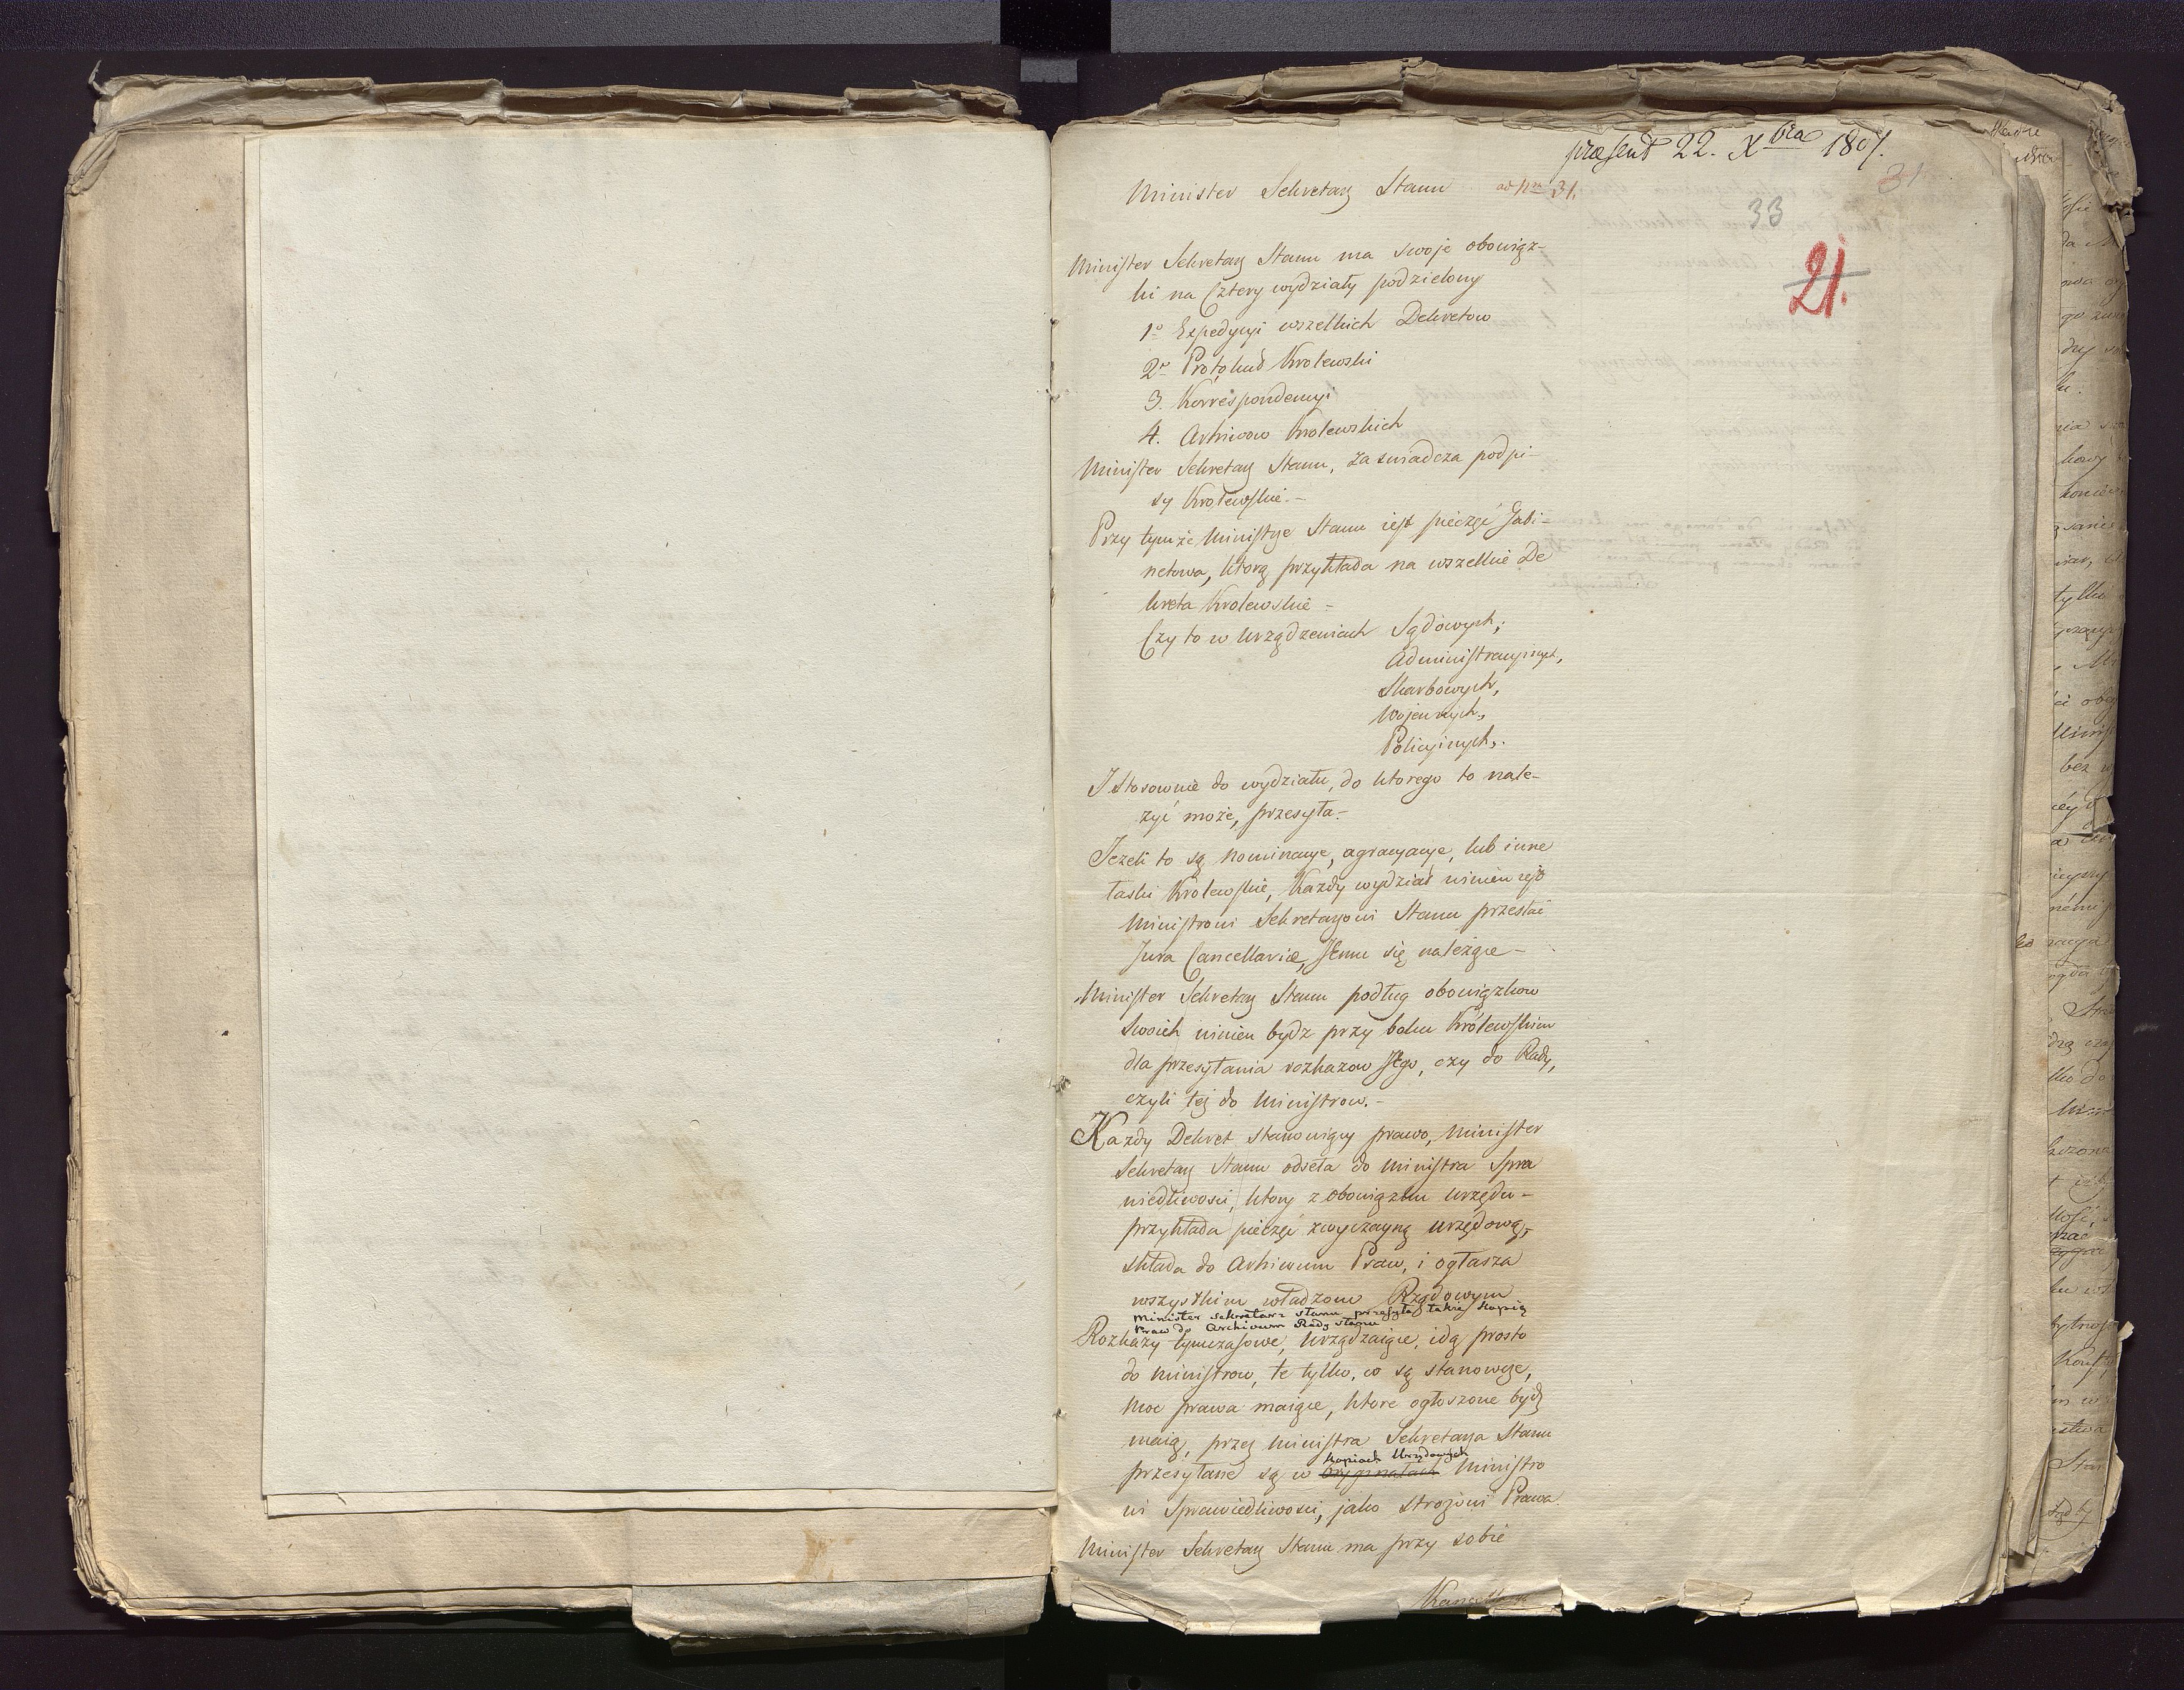 præsent 22. Xbra 1807.
Minister Sekretarz Stanu ad Nrm 31.
31
33
21.
Minister Sekretarz Stanu ma swoje obowiąz-
ki na Cztery wydziały podzielony
1º Expedycyi wszelkich Dekretow
2º Protokuł Krolewski
3. Korrespondencyi
4. Arhiwow Krolewskich
Minister Sekretarz Stanu, zaswiadcza podpi-
sy Krolewskie.-
Przy tymże Ministrze Stanu iest pieczęć Gabi-
netowa, ktorą przykłada na wszelkie De
kreta Krolewskie -
Czy to w Urządzeniach Sądowych;
Administracyinych,
Skarbowych,
Wojennych,
Policyinych,.
I Stosownie do wydziału, do ktorego to nale-
żyć może, przesyła.-
Jeżeli to są nominacye, agracyacye, lub inne
łaski Krolewskie, Każdy wydział winien iest
Ministrowi Sekretarzowi Stanu przesłać
Jura Cancellariæ, Jemu się należące -
Minister Sekretarz Stanu podług obowiązkow
Swoich winien bydz przy boku Królewskim
dla przesyłania rozkazow Jego, czy do Rady,
czyli też do Ministrow.-
Kazdy Dekret Stanowiący prawo, Minister
Sekretarz Stanu odseła do Ministra Spra
wiedliwosci, ktory z obowiązku urzędu-
przykłada pieczęć zwyczayną Urzędową,
składa do Arhiwum Praw, i ogłasza
wszystkim władzom Rządowym
Minister Sekretarz Stanu przesyła także kopią
Praw do Archivum Rady Stanu
Rozkazy tymczasowe, urządzaiące, idą prosto
do Ministrow, te tylko, co są stanowcze,
moc prawa maiące, ktore ogłoszone bydz
maią, przez Ministra Sekretarza Stanu
kopiach Urzędowych
przesyłane są w Oryginałach Ministro
wi Sprawiedliwosci, jako Strożowi Prawa.
Minister Sekretarz Stanu ma przy sobie